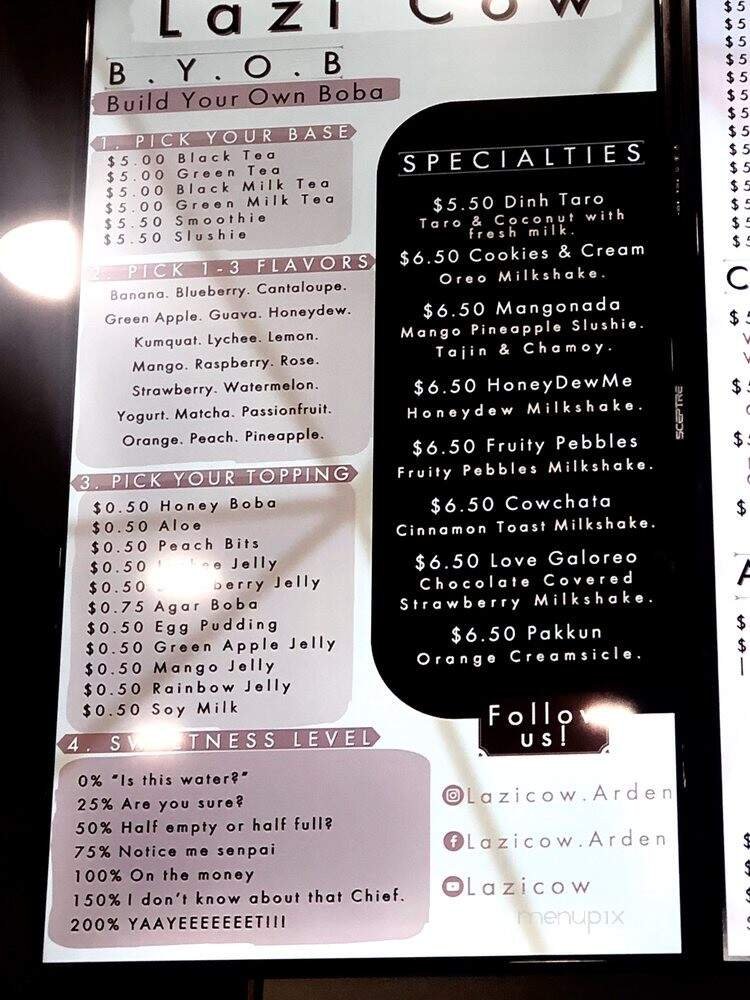 Lazi Cow
B.Y.O.B
Build Your Own Boba
1. PICK YOUR BASE
$5.00 Black Tea
$5.00 Green Tea
$5.00 Black Milk Tea
$5.00 Green Milk Tea
$5.50 Smoothie
$5.50 Slushie
2. PICK 1-3 FLAVORS
Banana. Blueberry. Cantaloupe.
Green Apple. Guava. Honeydew.
Kumquat. Lychee. Lemon.
Mango. Raspberry. Rose.
Strawberry. Watermelon.
Yogurt. Matcha. Passionfruit.
Orange. Peach. Pineapple.
3. PICK YOUR TOPPING
$0.50 Honey Boba
$0.50 Aloe
$0.50 Peach Bits
$0.50 Jelly
$0.50 Jelly
$0.75 Agar Boba
$0.50 Egg Pudding
$0.50 Green Apple Jelly
$0.50 Mango Jelly
$0.50 Rainbow Jelly
$0.50 Soy Milk
4. SWEETNESS LEVEL
0% "Is this water?"
25% Are you sure?
50% Half empty or half full?
75% Notice me senpai
100% On the money
150% I don't know about that Chief.
200% YAAYEEEEEEETIII
SPECIALTIES
$5.50 Dinh Taro
Taro & Coconut with
fresh milk.
$6.50 Cookies & Cream
Oreo Milkshake.
$6.50 Mangonada
Mango Pineapple Slushie.
Tajin & Chamoy.
$6.50 HoneyDewMe
Honeydew Milkshake.
$6.50 Fruity Pebbles
Fruity Pebbles Milkshake.
$6.50 Cowchata
Cinnamon Toast Milkshake.
$6.50 Love Galoreo
Chocolate Covered
Strawberry Milkshake.
$6.50 Pakkun
Orange Creamsicle.
Follow
us!
Lazicow.Arden
Lazicow.Arden
Lazicow
menupix
SCEPTRE